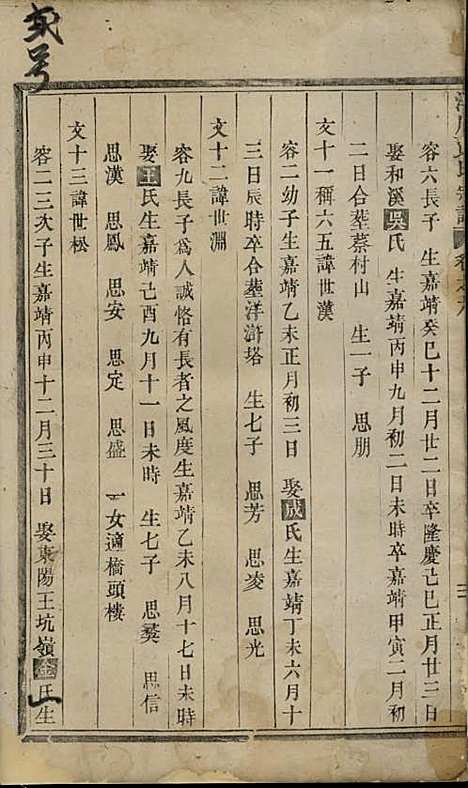 宗譜
容六長子 生嘉靖癸巳十二月廿二日卒隆慶己巳正月廿三日
娶和溪吳氏 生嘉靖丙申九月初二日未時卒嘉靖甲寅二月初
二日合塟蔡村山 生一子 思朋
文十一稱六五諱世漢
容二幼子生嘉靖乙未正月初三日 娶成氏生嘉靖丁未六月十
三日辰時卒合塟洋滸塔 生七子 思芳 思凌 思光
文十二諱世淵
容九長子爲人誠恪有長者之風度生嘉靖乙未八月十七日未時
娶王氏生嘉靖己酉九月十一日未時 生七子 思 思信
思漢 思鳳 思安 思定 思盛 一女適橋頭樓
文十三諱世松
容二三次子生嘉靖丙申十二月三十日 娶東陽王坑嶺金氏生